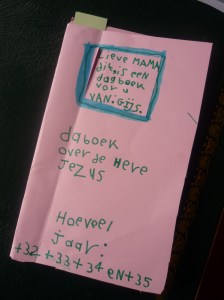 Lieve MAMA
dit is EEN
dagboek
vor u
VAN: GIJS.
daboek
over de Here
JeZus
Hoeveel
jaar:
+32 +33 +34 eN +35